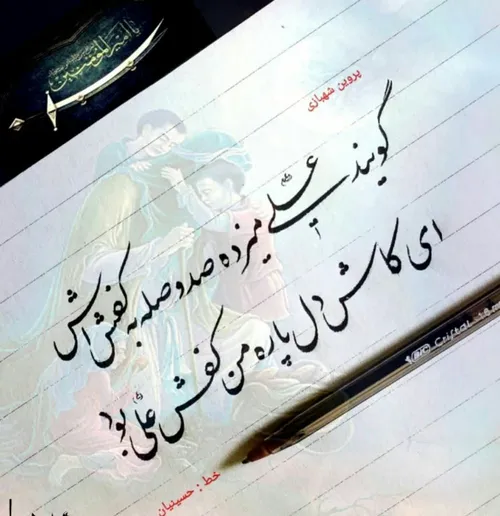 یا امیرالمؤمنین
پروین شهبازی
گویند علی میزده صد وصله به کفش اش
ای کاش دل پاره من کفش علی بود
خط : حسینیان
Cristal